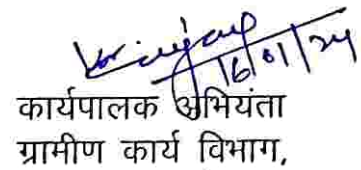 16/01/24
कार्यपालक अभियंता
ग्रामीण कार्य विभाग,